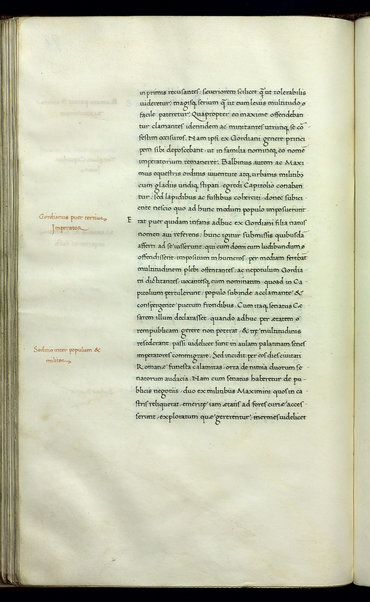 in primis recusantes, seueriorem scilicet q̃ ut tolerabilis
uideretur, magisq; serium q̃ ut eum leuis multitudo
facile pateretur. Quapropter eo maxime offendeban
tur clamantes identidem ac minitantes utrunq; se cō
festim occisuros. Nam ipsi ex Gordiani genere princi
pem sibi deposcebant, ut in familia nomineq; eo nomē
imperatorium remaneret. Balbinus autem ac Maxi
mus equestris ordinis iuuentute atq; urbanis militibꝰ
cum gladiis undiq; stipati, egredi Capitolio conaban
tur, sed lapidibus ac fustibus coherciti, donec subiici
ente nescio quo ad hunc modum populo imposuerunt
Gordianus puer tertius
Imperator
E rat puer quidam infans adhuc ex Gordiani filia natus
nomen aui referens, hunc igitur submissis quibusdā
afferri ad se iusserunt, qui cum domi eum ludibundum
offendissent, impositum in humeros, per mediam ferebāt
multitudinem plebi ostentantes, ac nepotulum Gordia
ni dictitantes, uocantesq; eum nominatim, quoad in Ca
pitolium pertulerunt, populo subinde acclamante &
conspergente puerum frondibus. Cum itaq; senatus Cę
sarem illum declarasset, quando adhuc per ætatem
rempublicam gerere non poterat, & irę multitudinis
Seditio inter populum &
milites
residerant, passi uidelicet sunt in aulam palatinam senes
imperatores commigrare. Sed incidit per eos dies ciuitati
Romanę funesta calamitas, orta de nimia duorum se
natorum audacia. Nam cum senatus haberetur de pu
blicis negotiis, duo ex militibus Maximini quos in ca
stris reliquerat, emeritę iam ætatis ad fores curiæ acces
serunt, exploratum quæ gererentur, inermes uidelicet